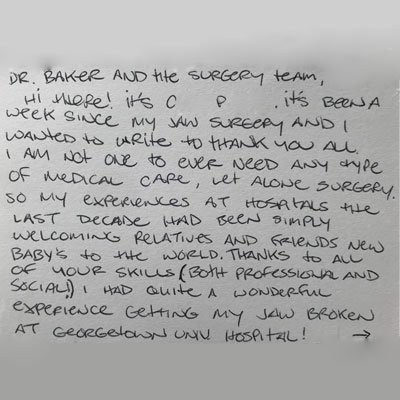 DR. BAKER AND the SURGERY team,
Hi there! it's C P . it's BEEN A
WEEK SINCE MY JAW SURGERY AND I
WANTED to WRITE to THANK YOU ALL.
I AM NOT ONE to EVER NEED ANY type
OF MEDICAL CARE, LET ALONE SURGERY.
SO MY EXPERIENCES AT HOSPITALS the
LAST DECADE HAD BEEN SIMPLY
WELCOMING RELATIVES AND FRIENDS NEW
BABY'S to the WORLD. THANKS to ALL
OF YOUR SKILLS (BOTH PROFESSIONAL AND
SOCIAL!) I HAD QUITE A WONDERFUL
EXPERIENCE GETTING MY JAW BROKEN
AT GEORGETOWN UNIV HOSPITAL! →